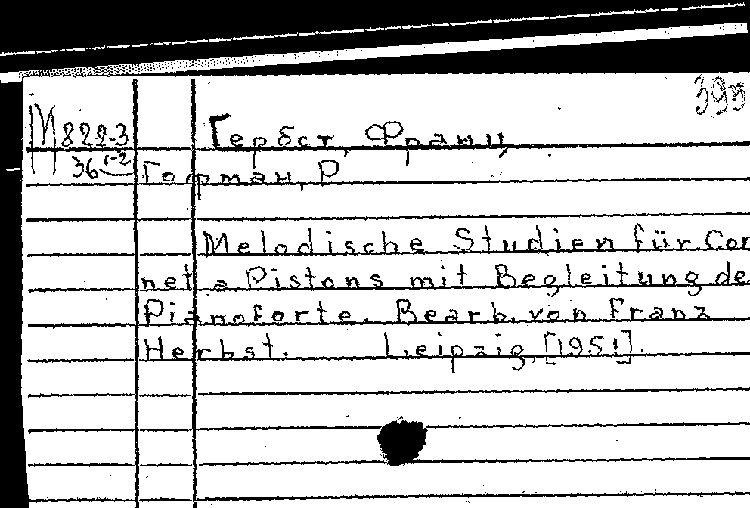 М 822-3 Гербст, Франц
36 1-2 Гофман, Р
Melodische Studien für Cor
net a Pistons mit Begleitung de
Pianoforte. Bearb. von Franz
Herbst. Leipzig, [1951].